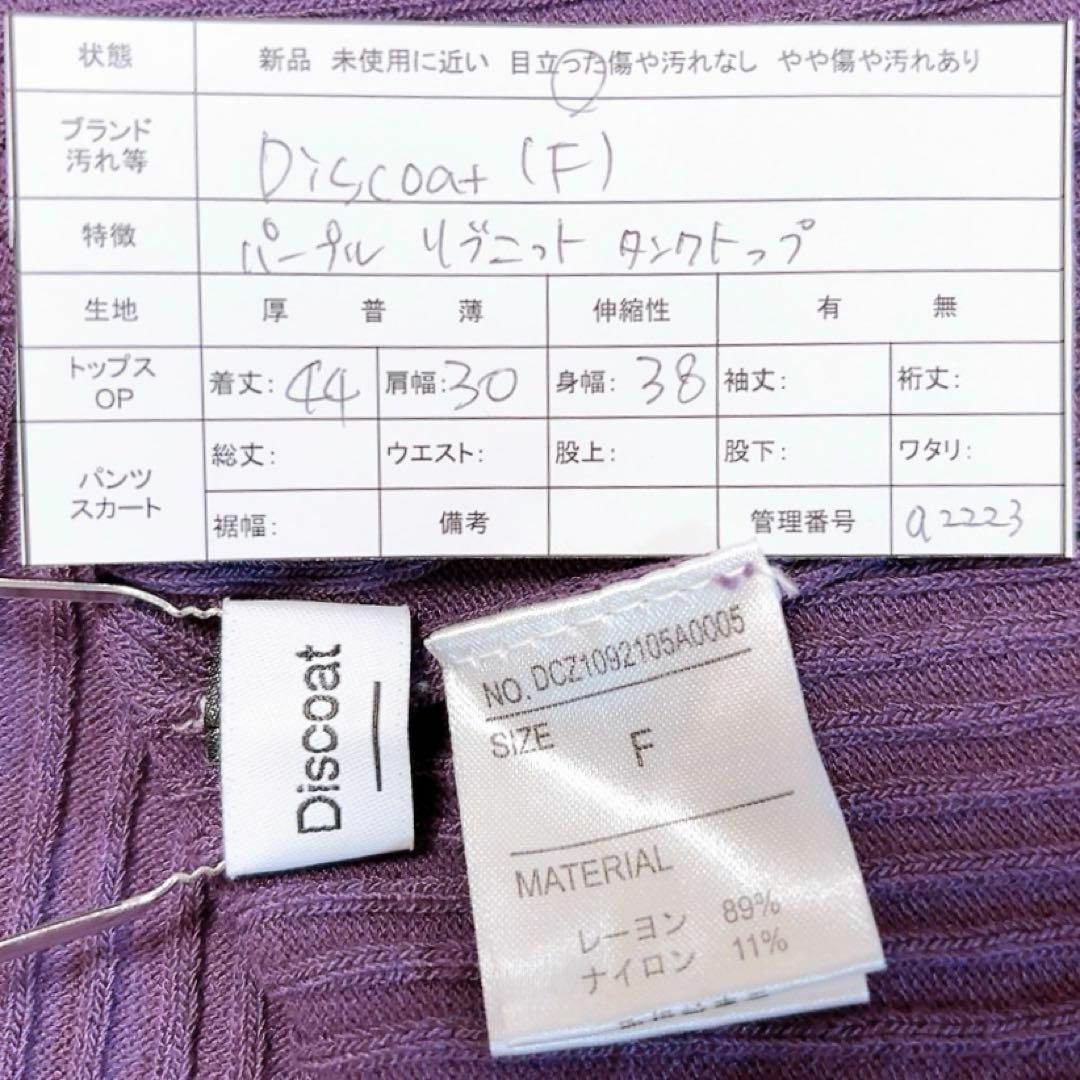 状態 新品 未使用に近い 目立った傷や汚れなし やや傷や汚れあり
ブランド
汚れ等
Discoat (F)
特徴 パープル リブニット タンクトップ
生地 厚 普 薄 伸縮性 有 無
トップス
OP
着丈: 44 肩幅: 30 身幅: 38 袖丈: 裄丈:
パンツ
スカート
総丈: ウエスト: 股上: 股下: ワタリ:
裾幅: 備考 管理番号 a2223
Discoat
NO. DCZ1092105A0005
SIZE F
MATERIAL
レーヨン 89%
ナイロン 11%